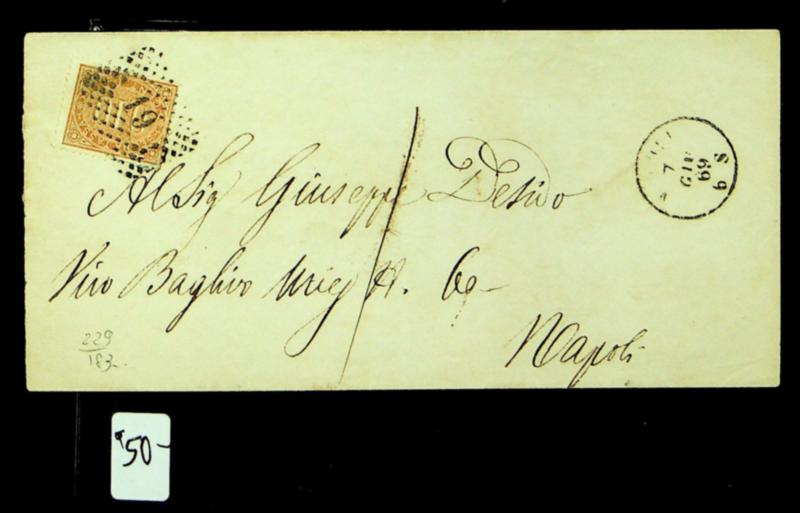 19
7
GIU
69
6 S
Al Sig Giuseppe Desido
Vico Baglivo Uries N. 60
Napoli
229
183
50-